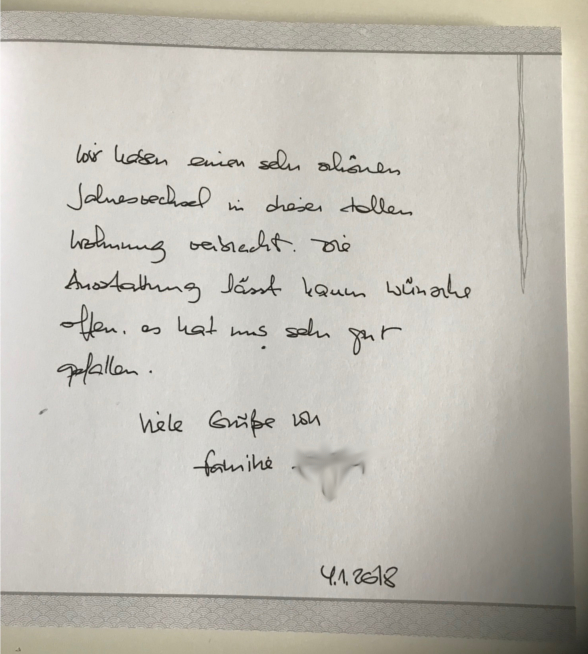 Wir haben einen sehr schönen
Jahreswechsel in dieser tollen
Wohnung verbracht. Die
Ausstattung lässt kaum Wünsche
offen. es hat uns sehr gut
gefallen.
Viele Grüße von
Familie
4.1.2018